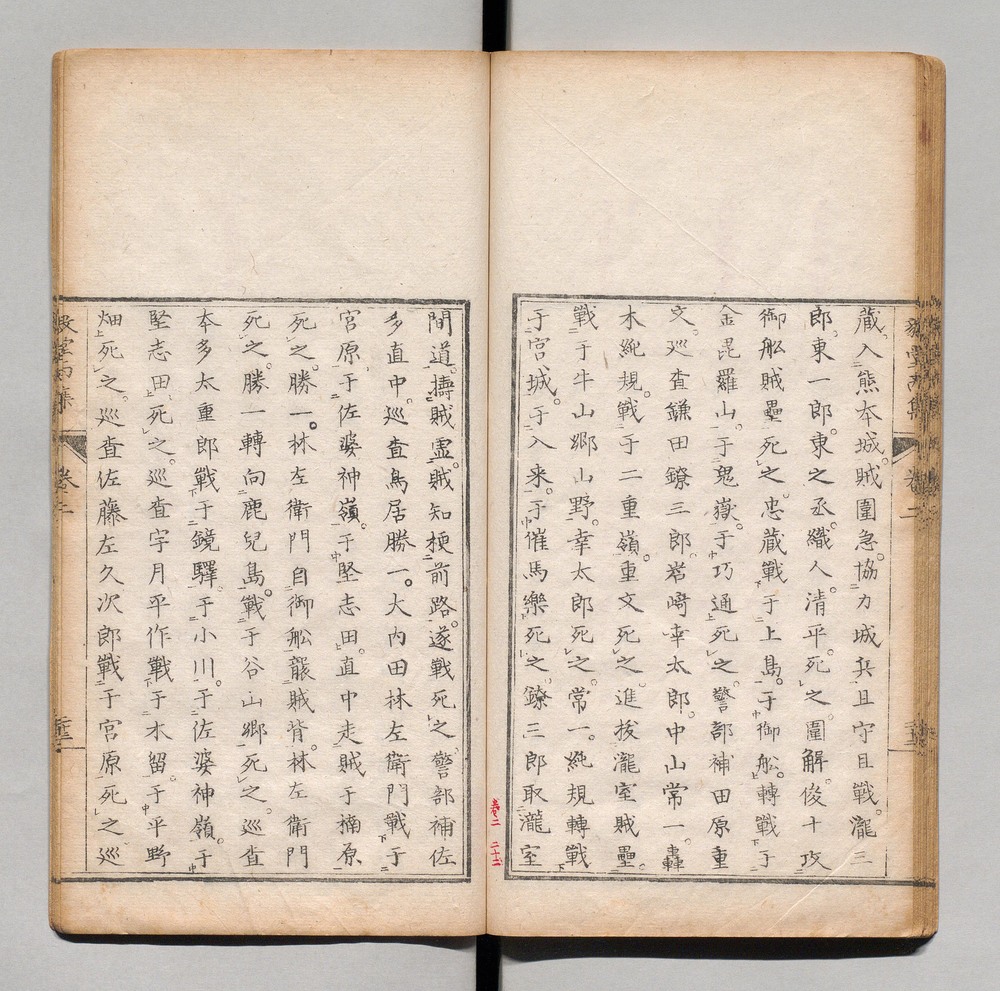 蔵入熊本城。賊圍急。協力城兵且守且戰。瀧三
郎。東一郎。東之丞。織人。清平。死之。圍解。俊十攻
御船賊壘死之。忠蔵戰于上島。于御船。轉戰于
金毘羅山。于鬼嶽。于巧通死之。警部補田原重
文。巡査鎌田鐐三郎。岩﨑幸太郎。中山常一。轟
木純規。戰于二重嶺。重文死之。進拔瀧室賊壘。
戰于牛山郷山野。幸太郎死之。常一。純規轉戰
于宮城。于入来。于催馬樂死之。鐐三郎取瀧室
間道。擣賊虚。賊知梗前路。遂戰死之。警部補佐
多直中。巡査鳥居勝一。大内田林左衛門戰于
宮原。于佐婆神嶺。于堅志田。直中走賊于楠原
死之。勝一。林左衛門自御船襲賊背。林左衛門
死之。勝一轉向鹿兒島。戰于谷山郷死之。巡査
本多太重郎戰于鏡驛。于小川。于佐婆神嶺。于
堅志田死之。巡査宇月平作戰于木留。于平野
畑死之。巡査佐藤左久次郎戰于宮原死之。巡
卷二
卷二 二十二